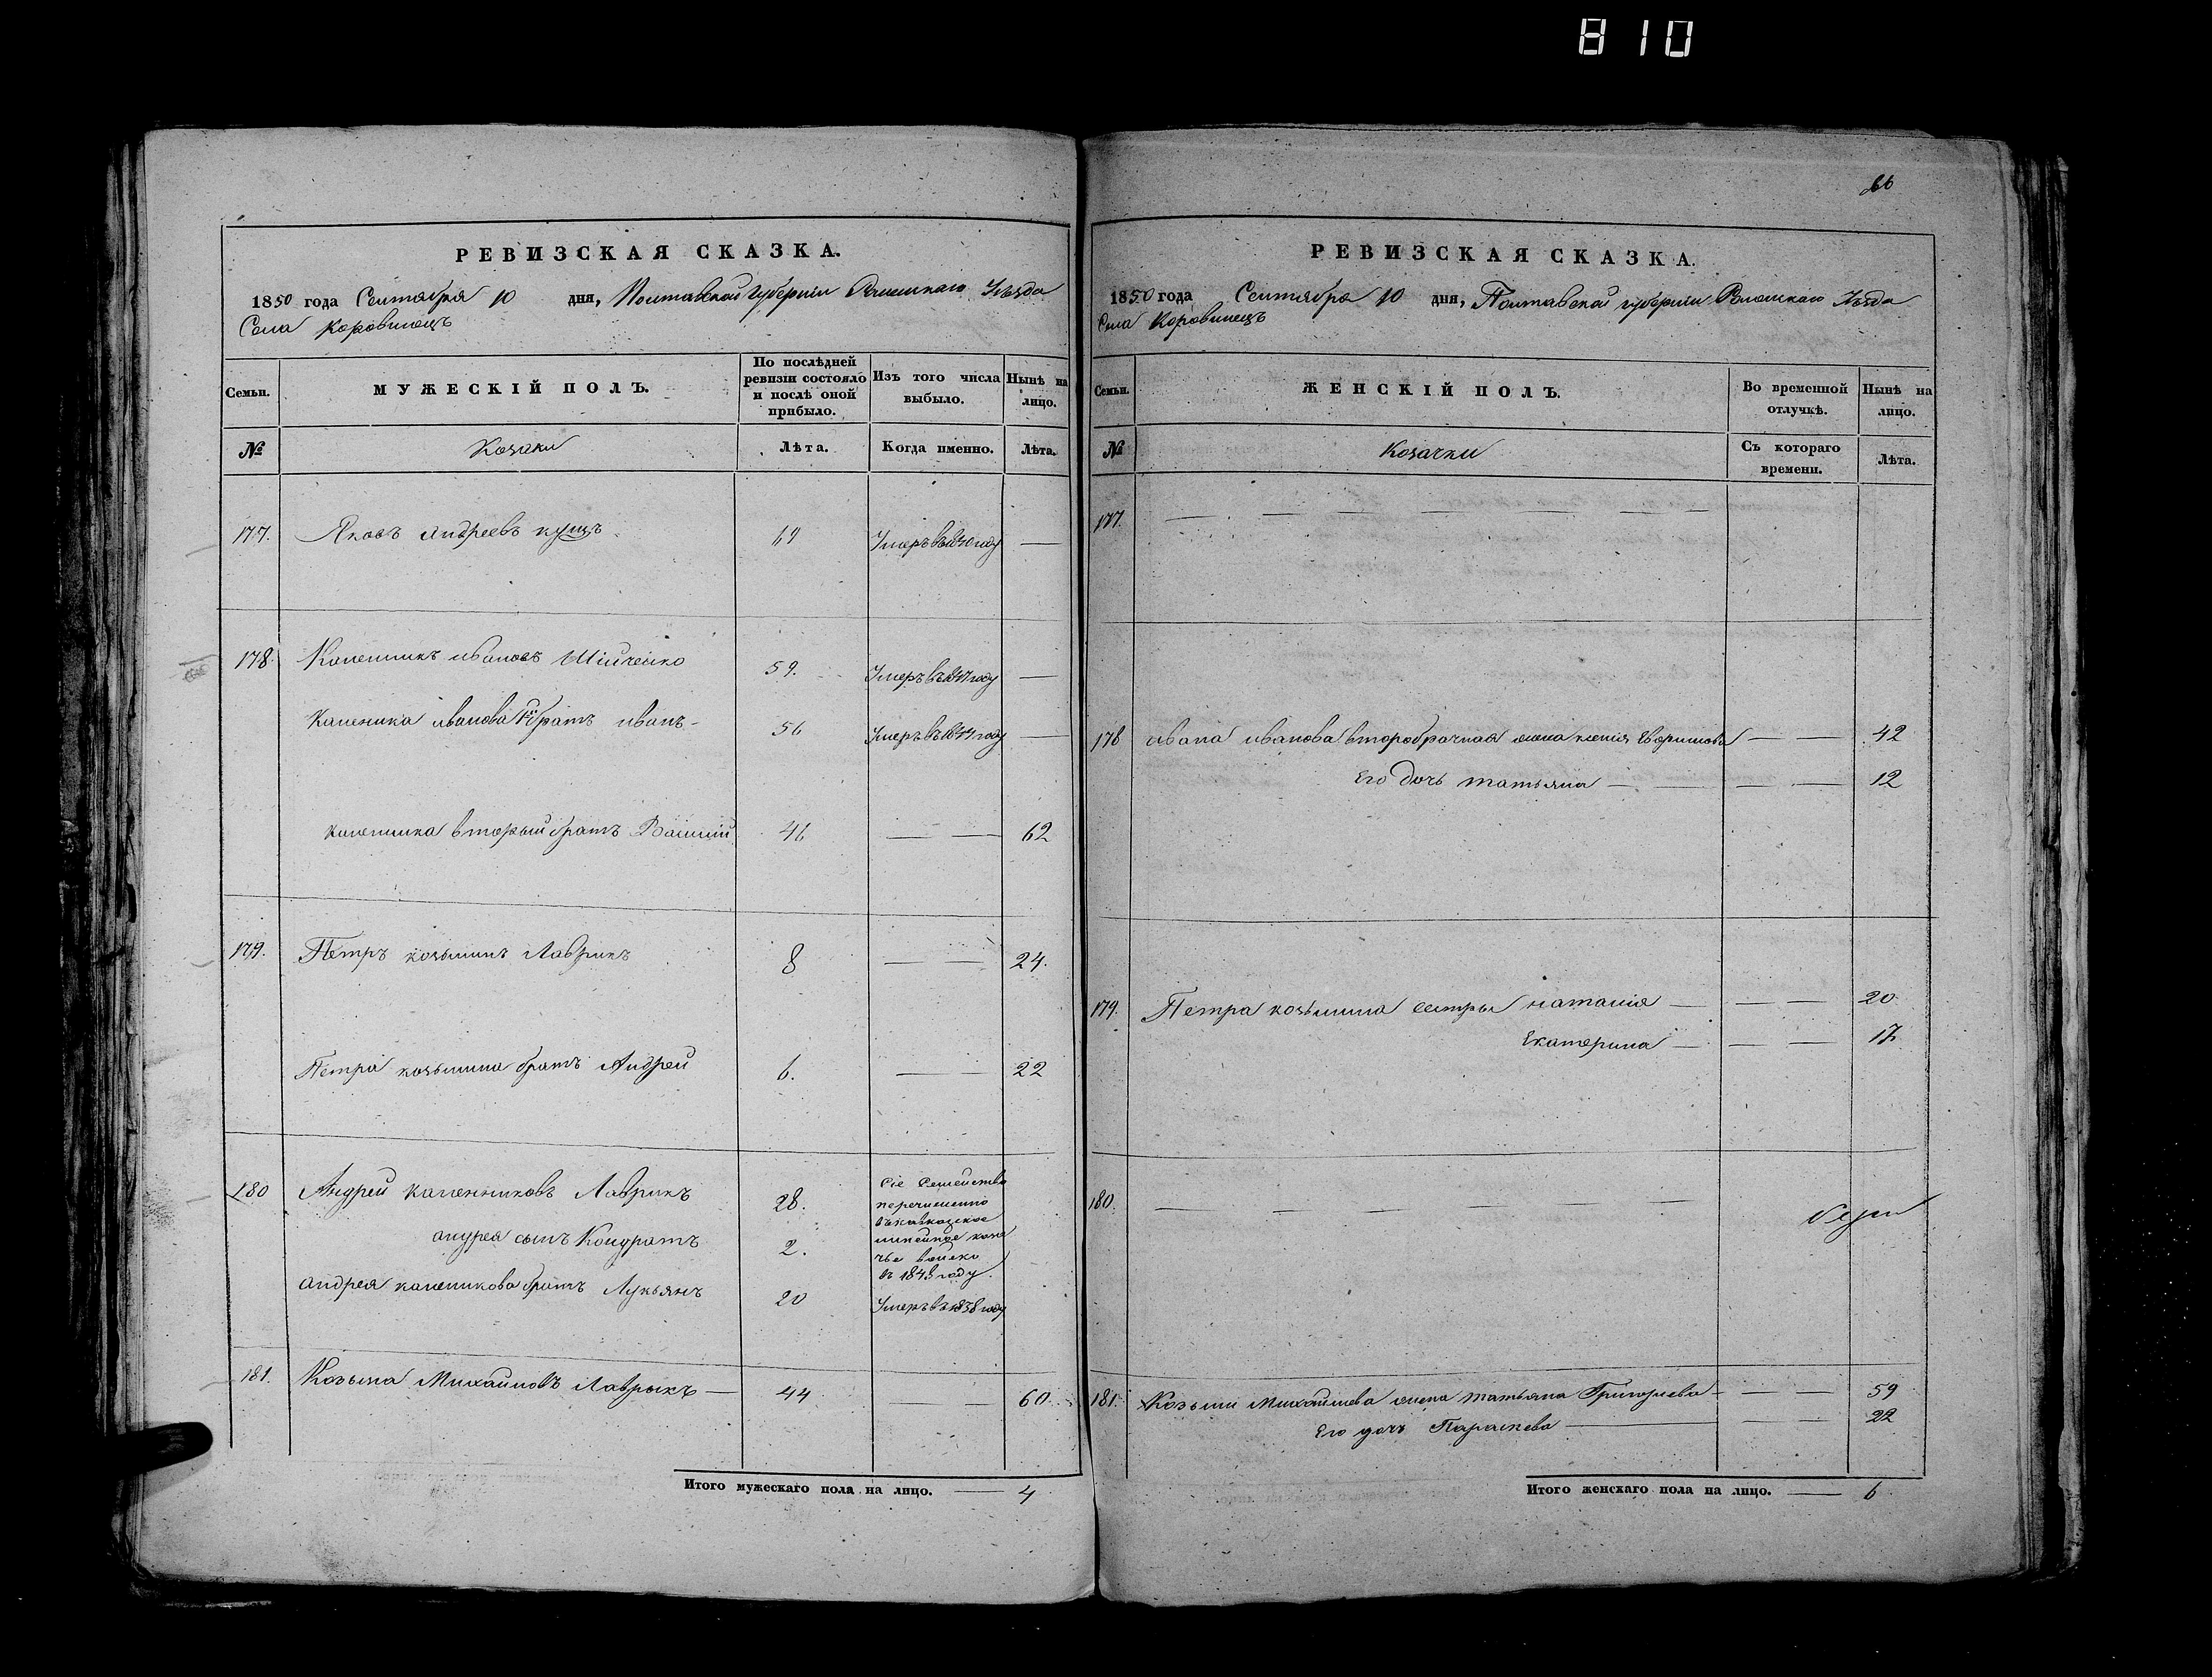 810
66
РЕВИЗСКАЯ СКАЗКА.
1850 года Сентября 10 дня, Полтавской губернии Роменскаго Уѣзда
Села Коровинецъ
Семьи. МУЖЕСКІЙ ПОЛЪ. По послѣдней ревизіи состояло и послѣ оной прибыло. Изъ того числа выбыло. Нынѣ на лицо.
№ Козаки Лѣта. Когда именно. Лѣта.
177. Яковъ Андреевъ Кущъ 69 Умеръ въ 1840 году —
178. Каленникъ Ивановъ 59. Умеръ въ году —
Каленика Иванова 1й братъ Иванъ - 56 Умеръ въ году —
Каленика вторый братъ Василій 46 — — 62
179. Петръ Козьминъ Лаврикъ 8 — — 24.
Петра Козьмина братъ Андрей 6. — — 22
180 Андрей Каленниковъ Лаврикъ 28. Сіе Семейство
перечисленно
въ кавказское
линейное каза
чье войско
въ 1848 году.
Андрея сынъ Кондратъ 2.
Андрея Каленикова братъ Лукьянъ 20 Умеръ въ 1838 году
181. Козьма Михайловъ Лаврыкъ — 44 — — 60.
Итого мужескаго пола на лицо. — 4
РЕВИЗСКАЯ СКАЗКА.
1850 года Сентября 10 дня, Полтавской губернии Роменскаго Уѣзда
Села Коровинецъ
Семьи. ЖЕНСКІЙ ПОЛЪ. Во временной отлучкѣ. Нынѣ на лицо.
№ Козачки Съ котораго времени. Лѣта.
177. — — — — — — —
178 Ивана Иванова второбрачная жена Ксенія — — 42
Его дочь Татьяна — — — — 12
179. Петра Козьмина сестры Наталія — — — 20
Екатерина — — — 17
180. — — — — — —
181. Козьми Михайлова жена Татьяна Григорьева - — — 59
Его дочь Параскева — — — 22
Итого женскаго пола на лицо. — 6